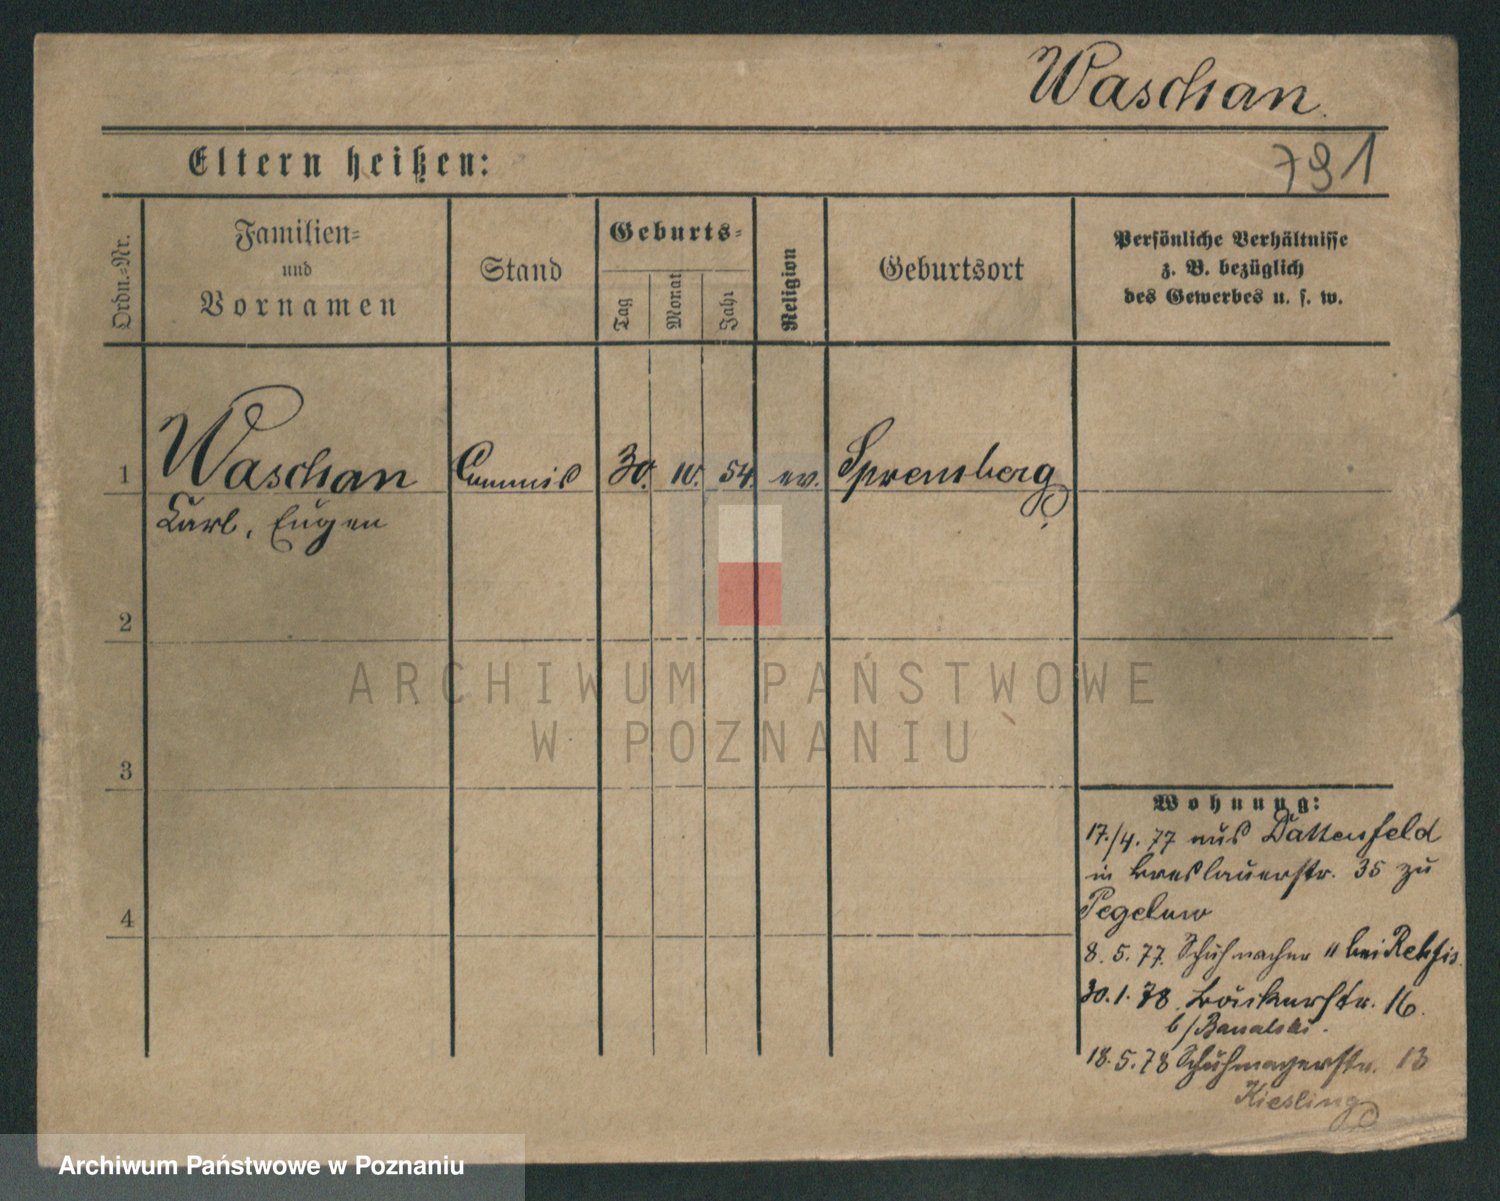 Waschan.
Eltern heißen:
791
Ordn.=Nr.
Familien=
und
Vornamen
Stand
Geburts=
Tag
Monat
Jahr
Religion
Geburtsort
Persönliche Verhältnisse
z. B. bezüglich
des Gewerbes u. s. w.
1
Waschan
Commis
30.
10.
54.
ev.
Spremberg
Carl, Eugen
2
3
4
Wohnung:
17./4. 77 aus Dattenfeld
in Breslauerstr. 35 zu
8. 5. 77. Schuhmacher 11 bei
30. 1. 78. Bäckerstr. 16.
b/
18. 5. 78 Schuhmacherstr. 13
Kiesling
ARCHIWUM PAŃSTWOWE
W POZNANIU
Archiwum Państwowe w Poznaniu